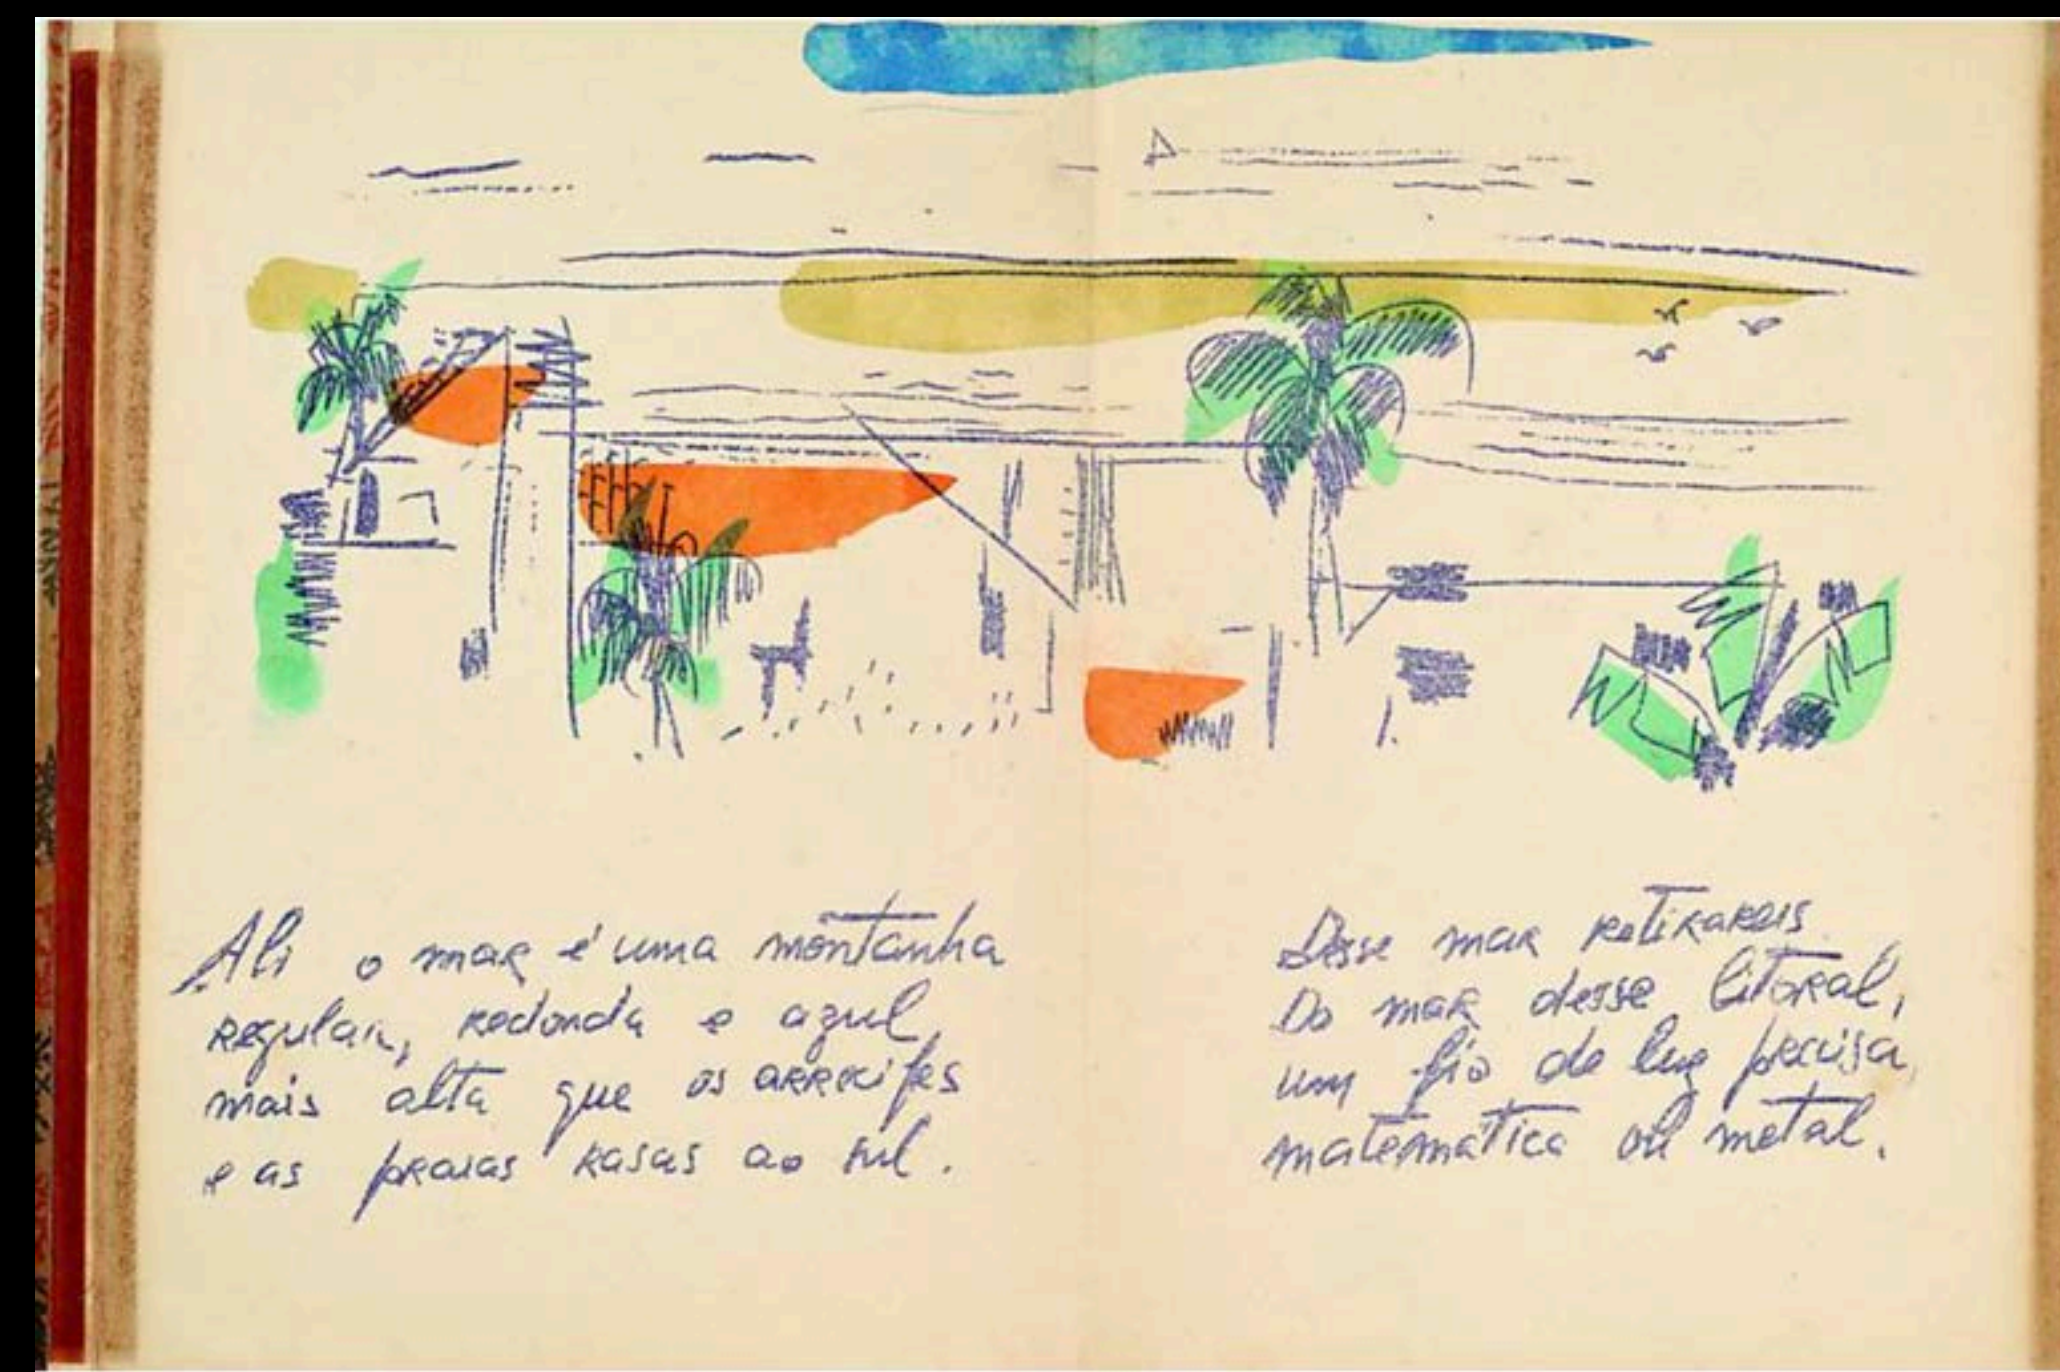 Ali o mar é uma montanha
regular, redonda e azul,
mais alta que os arrecifes
e as praias rasas ao sul.
Desse mar retirareis
Do mar desse litoral,
um fio de luz precisa,
matemática ou metal.